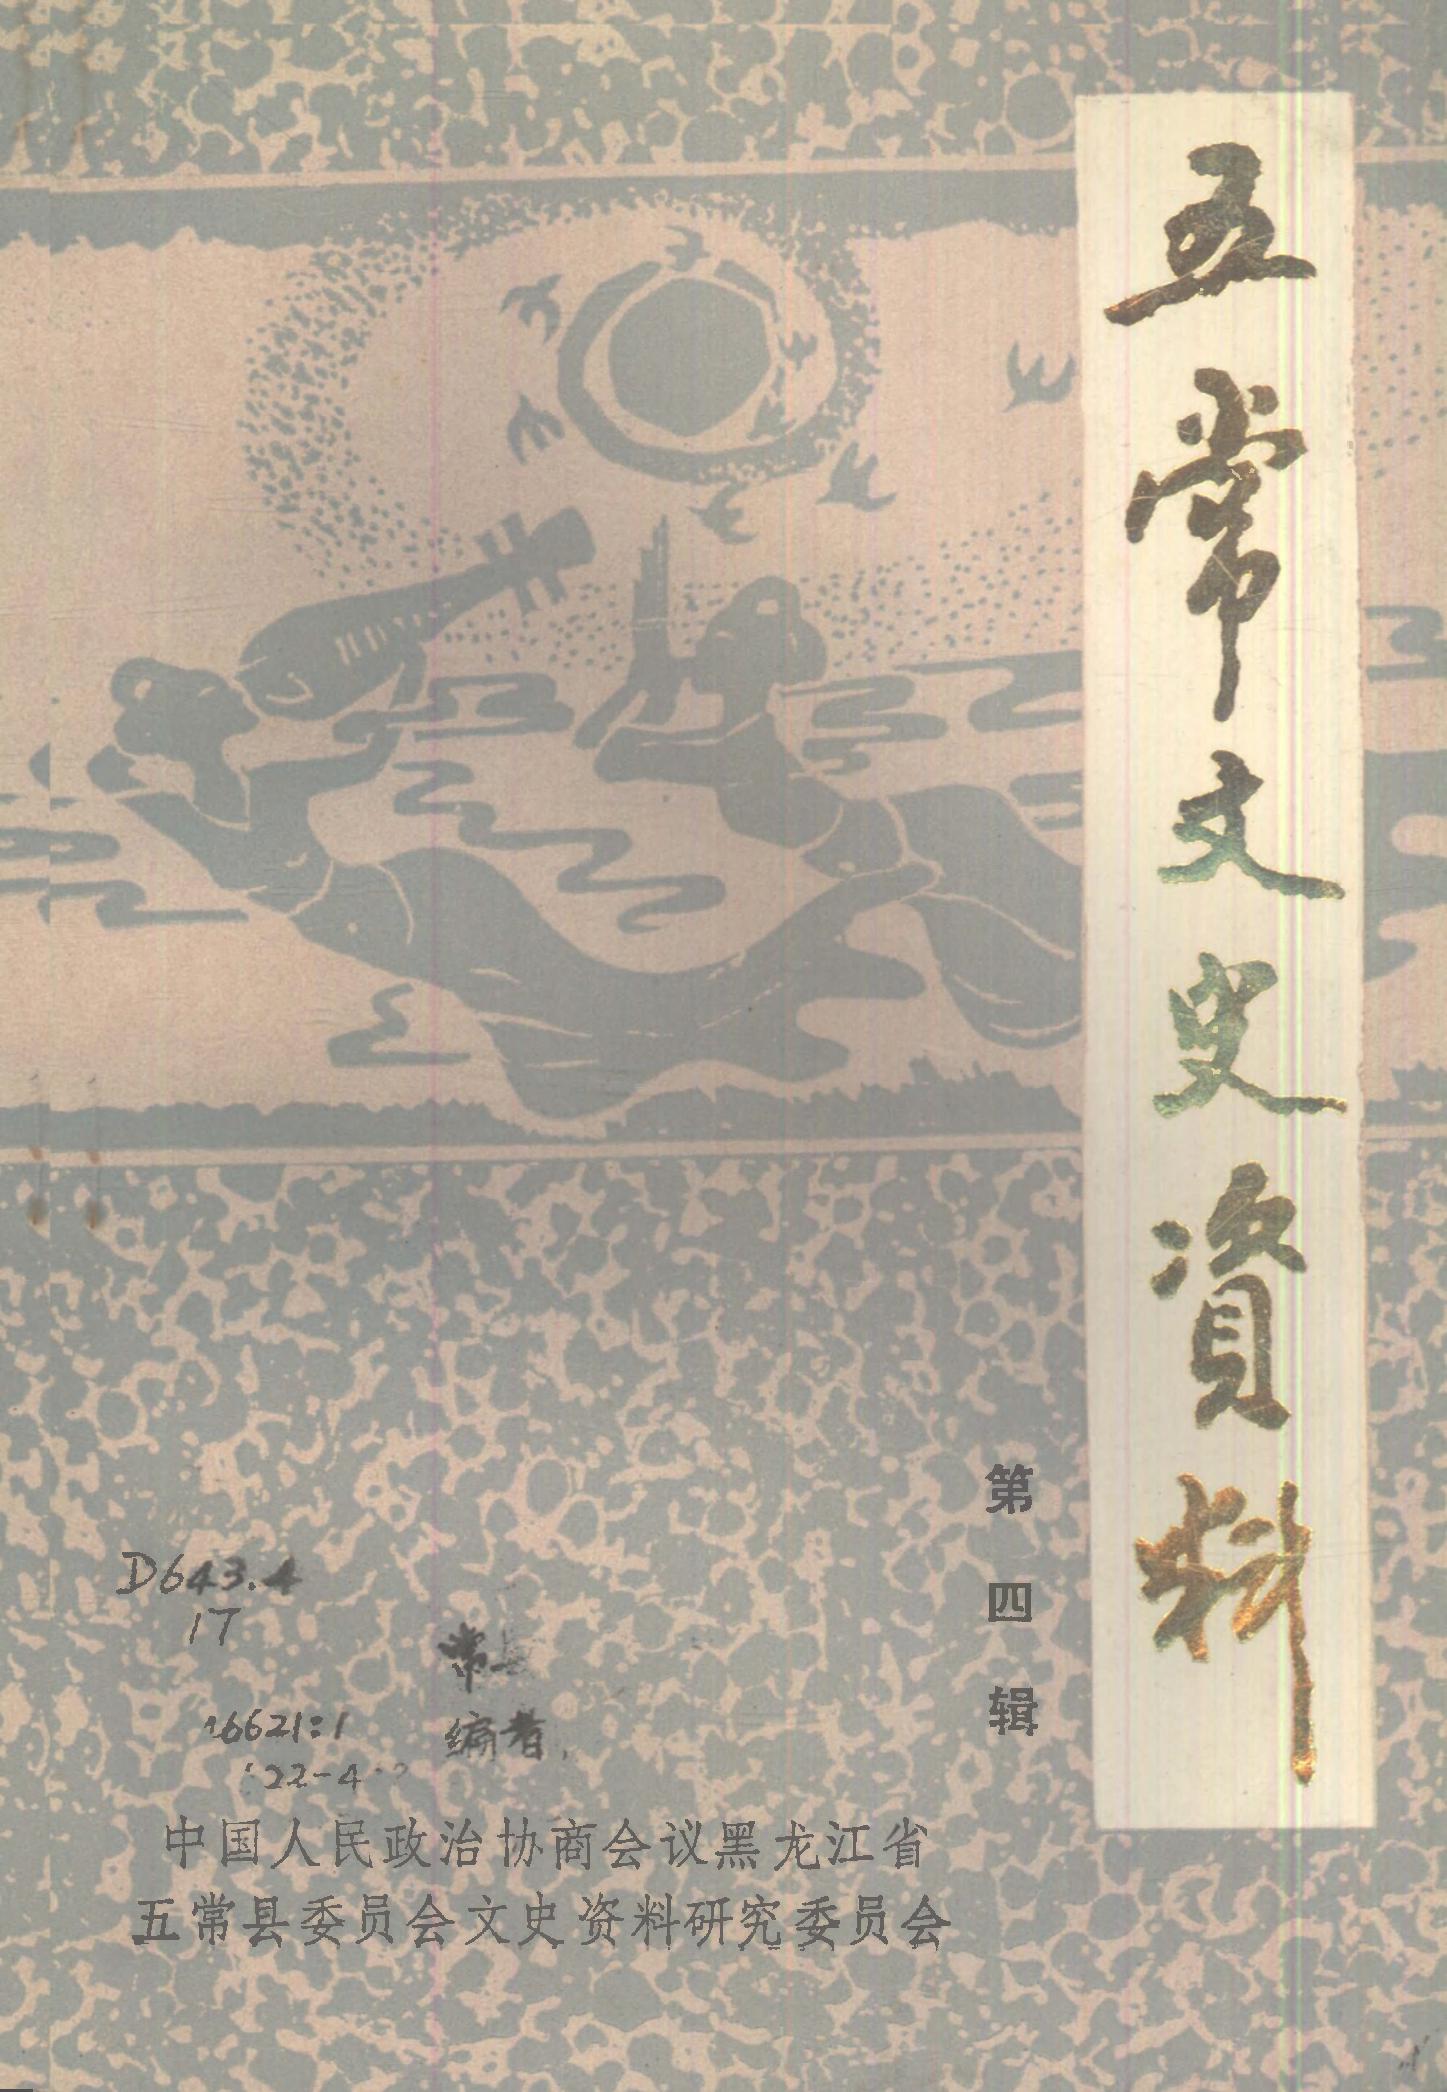 五常文史資料
第四辑
D643.4
17
编者
中国人民政治协商会议黑龙江省
五常县委员会文史资料研究委员会